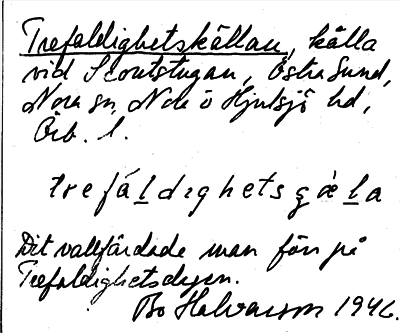 Trefaldighetskällan, källa
vid Scoutstugan, Östra Sund,
Nora sn, Nora o Hjulsjö hd,
Örb. l.
trefáldıghetsçä̀la
Dit vallfärdade man förr på
Trefaldighetsdagen.
Bo Halvarson 1946.